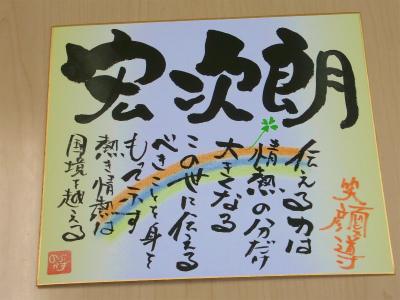 宏次朗
伝える力は
情熱の分だけ
大きくなる
この世に伝える
べきことを身を
もって示す
熱き情熱は
国境を越える